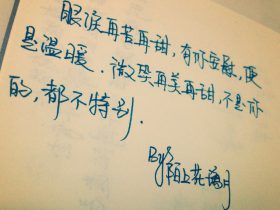 眼泪再苦再甜,有你安融,便
是温暖.微笑再美再甜,不是你
的,都不特别.
By陌上花漓月